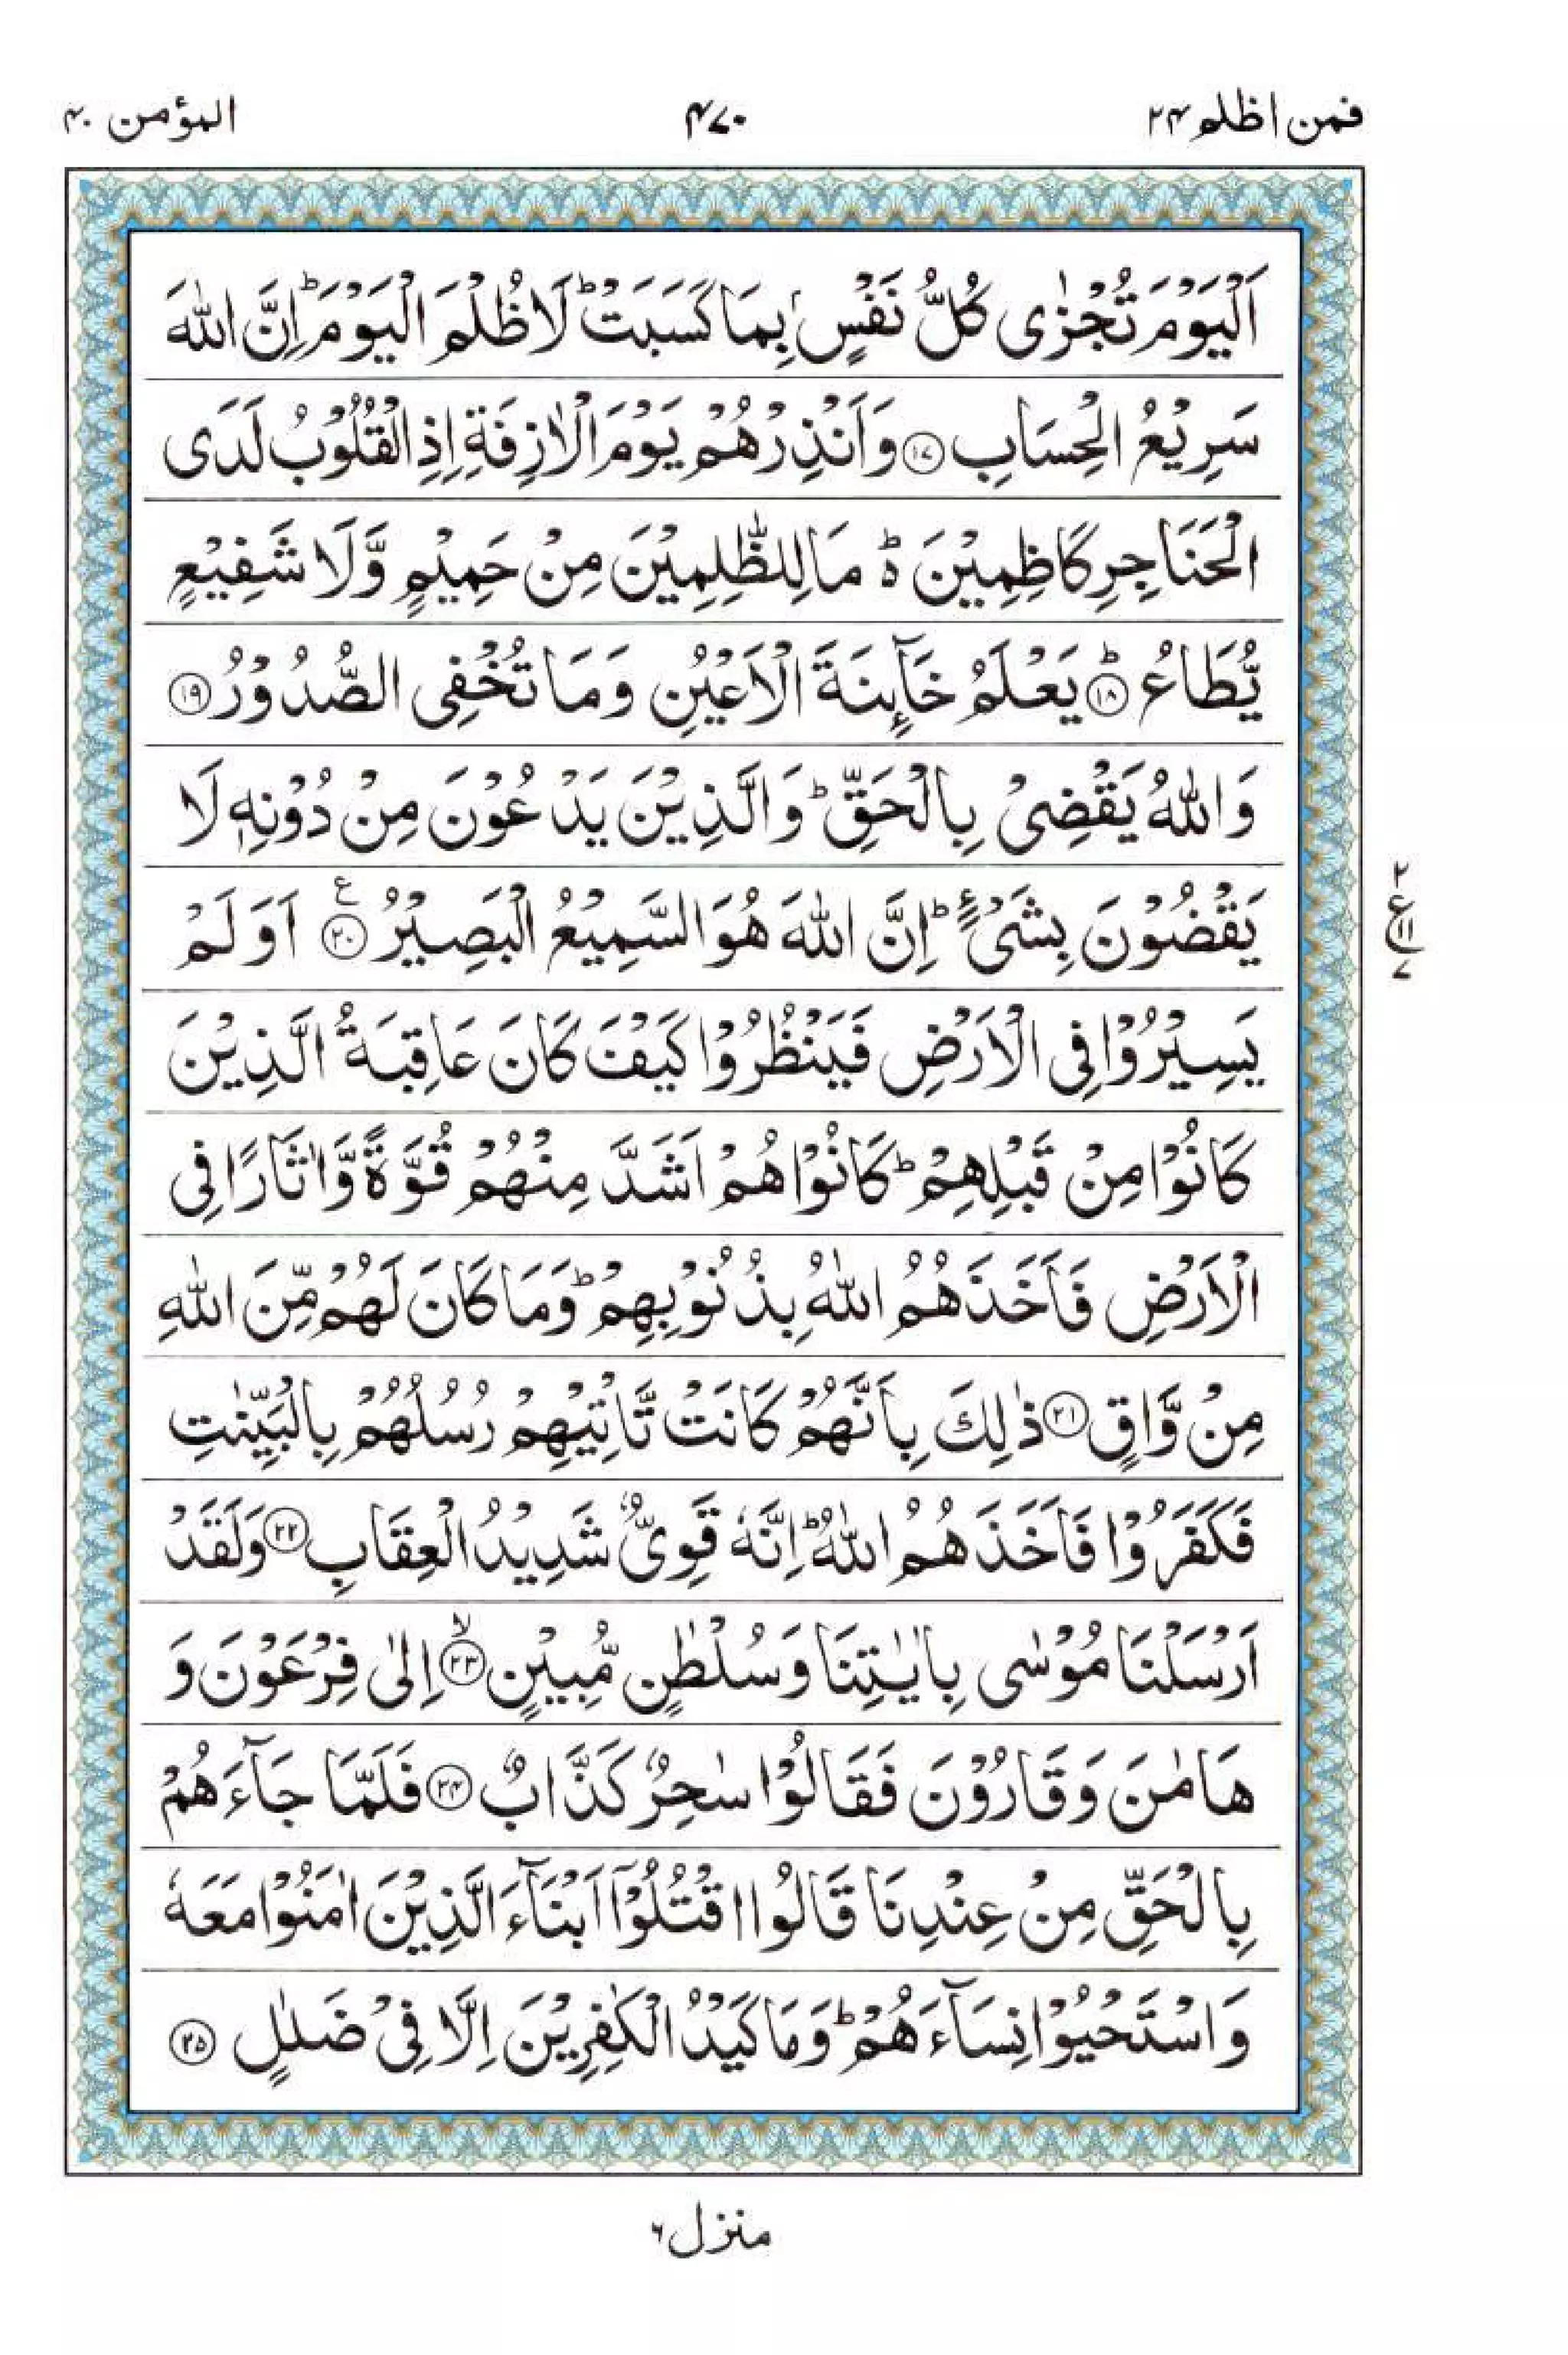 فمن اظلم ۲۴
۴۷۰
المؤمن ۴۰
اَلْيَوْمَ تُجْزٰى كُلُّ نَفْسٍۭ بِمَا كَسَبَتْ ؕ لَا ظُلْمَ الْيَوْمَ ؕ اِنَّ اللّٰهَ
سَرِيْعُ الْحِسَابِ ۝۱۷ وَاَنْذِرْهُمْ يَوْمَ الْاٰزِفَةِ اِذِ الْقُلُوْبُ لَدَى
الْحَنَاجِرِ كَاظِمِيْنَ ؕ مَا لِلظّٰلِمِيْنَ مِنْ حَمِيْمٍ وَّلَا شَفِيْعٍ
يُّطَاعُ ؕ ۝۱۸ يَعْلَمُ خَآىِٕنَةَ الْاَعْيُنِ وَمَا تُخْفِى الصُّدُوْرُ ۝۱۹
وَاللّٰهُ يَقْضِىْ بِالْحَقِّ ؕ وَالَّذِيْنَ يَدْعُوْنَ مِنْ دُوْنِهٖ لَا
يَقْضُوْنَ بِشَىْءٍ ؕ اِنَّ اللّٰهَ هُوَ السَّمِيْعُ الْبَصِيْرُ ع ۝۲۰ اَوَلَمْ
۲
ع
۱۱
۷
يَسِيْرُوْا فِى الْاَرْضِ فَيَنْظُرُوْا كَيْفَ كَانَ عَاقِبَةُ الَّذِيْنَ
كَانُوْا مِنْ قَبْلِهِمْ ؕ كَانُوْا هُمْ اَشَدَّ مِنْهُمْ قُوَّةً وَّاٰثَارًا فِى
الْاَرْضِ فَاَخَذَهُمُ اللّٰهُ بِذُنُوْبِهِمْ ؕ وَمَا كَانَ لَهُمْ مِّنَ اللّٰهِ
مِنْ وَّاقٍ ۝۲۱ ذٰلِكَ بِاَنَّهُمْ كَانَتْ تَّاْتِيْهِمْ رُسُلُهُمْ بِالْبَيِّنٰتِ
فَكَفَرُوْا فَاَخَذَهُمُ اللّٰهُ ؕ اِنَّهٗ قَوِىٌّ شَدِيْدُ الْعِقَابِ ۝۲۲ وَلَقَدْ
اَرْسَلْنَا مُوْسٰى بِاٰيٰتِنَا وَسُلْطٰنٍ مُّبِيْنٍ ۙ ۝۲۳ اِلٰى فِرْعَوْنَ وَ
هَامٰنَ وَقَارُوْنَ فَقَالُوْا سٰحِرٌ كَذَّابٌ ۝۲۴ فَلَمَّا جَآءَهُمْ
بِالْحَقِّ مِنْ عِنْدِنَا قَالُوا اقْتُلُوْۤا اَبْنَآءَ الَّذِيْنَ اٰمَنُوْا مَعَهٗ
وَاسْتَحْيُوْا نِسَآءَهُمْ ؕ وَمَا كَيْدُ الْكٰفِرِيْنَ اِلَّا فِىْ ضَلٰلٍ ۝۲۵
منزل ۶